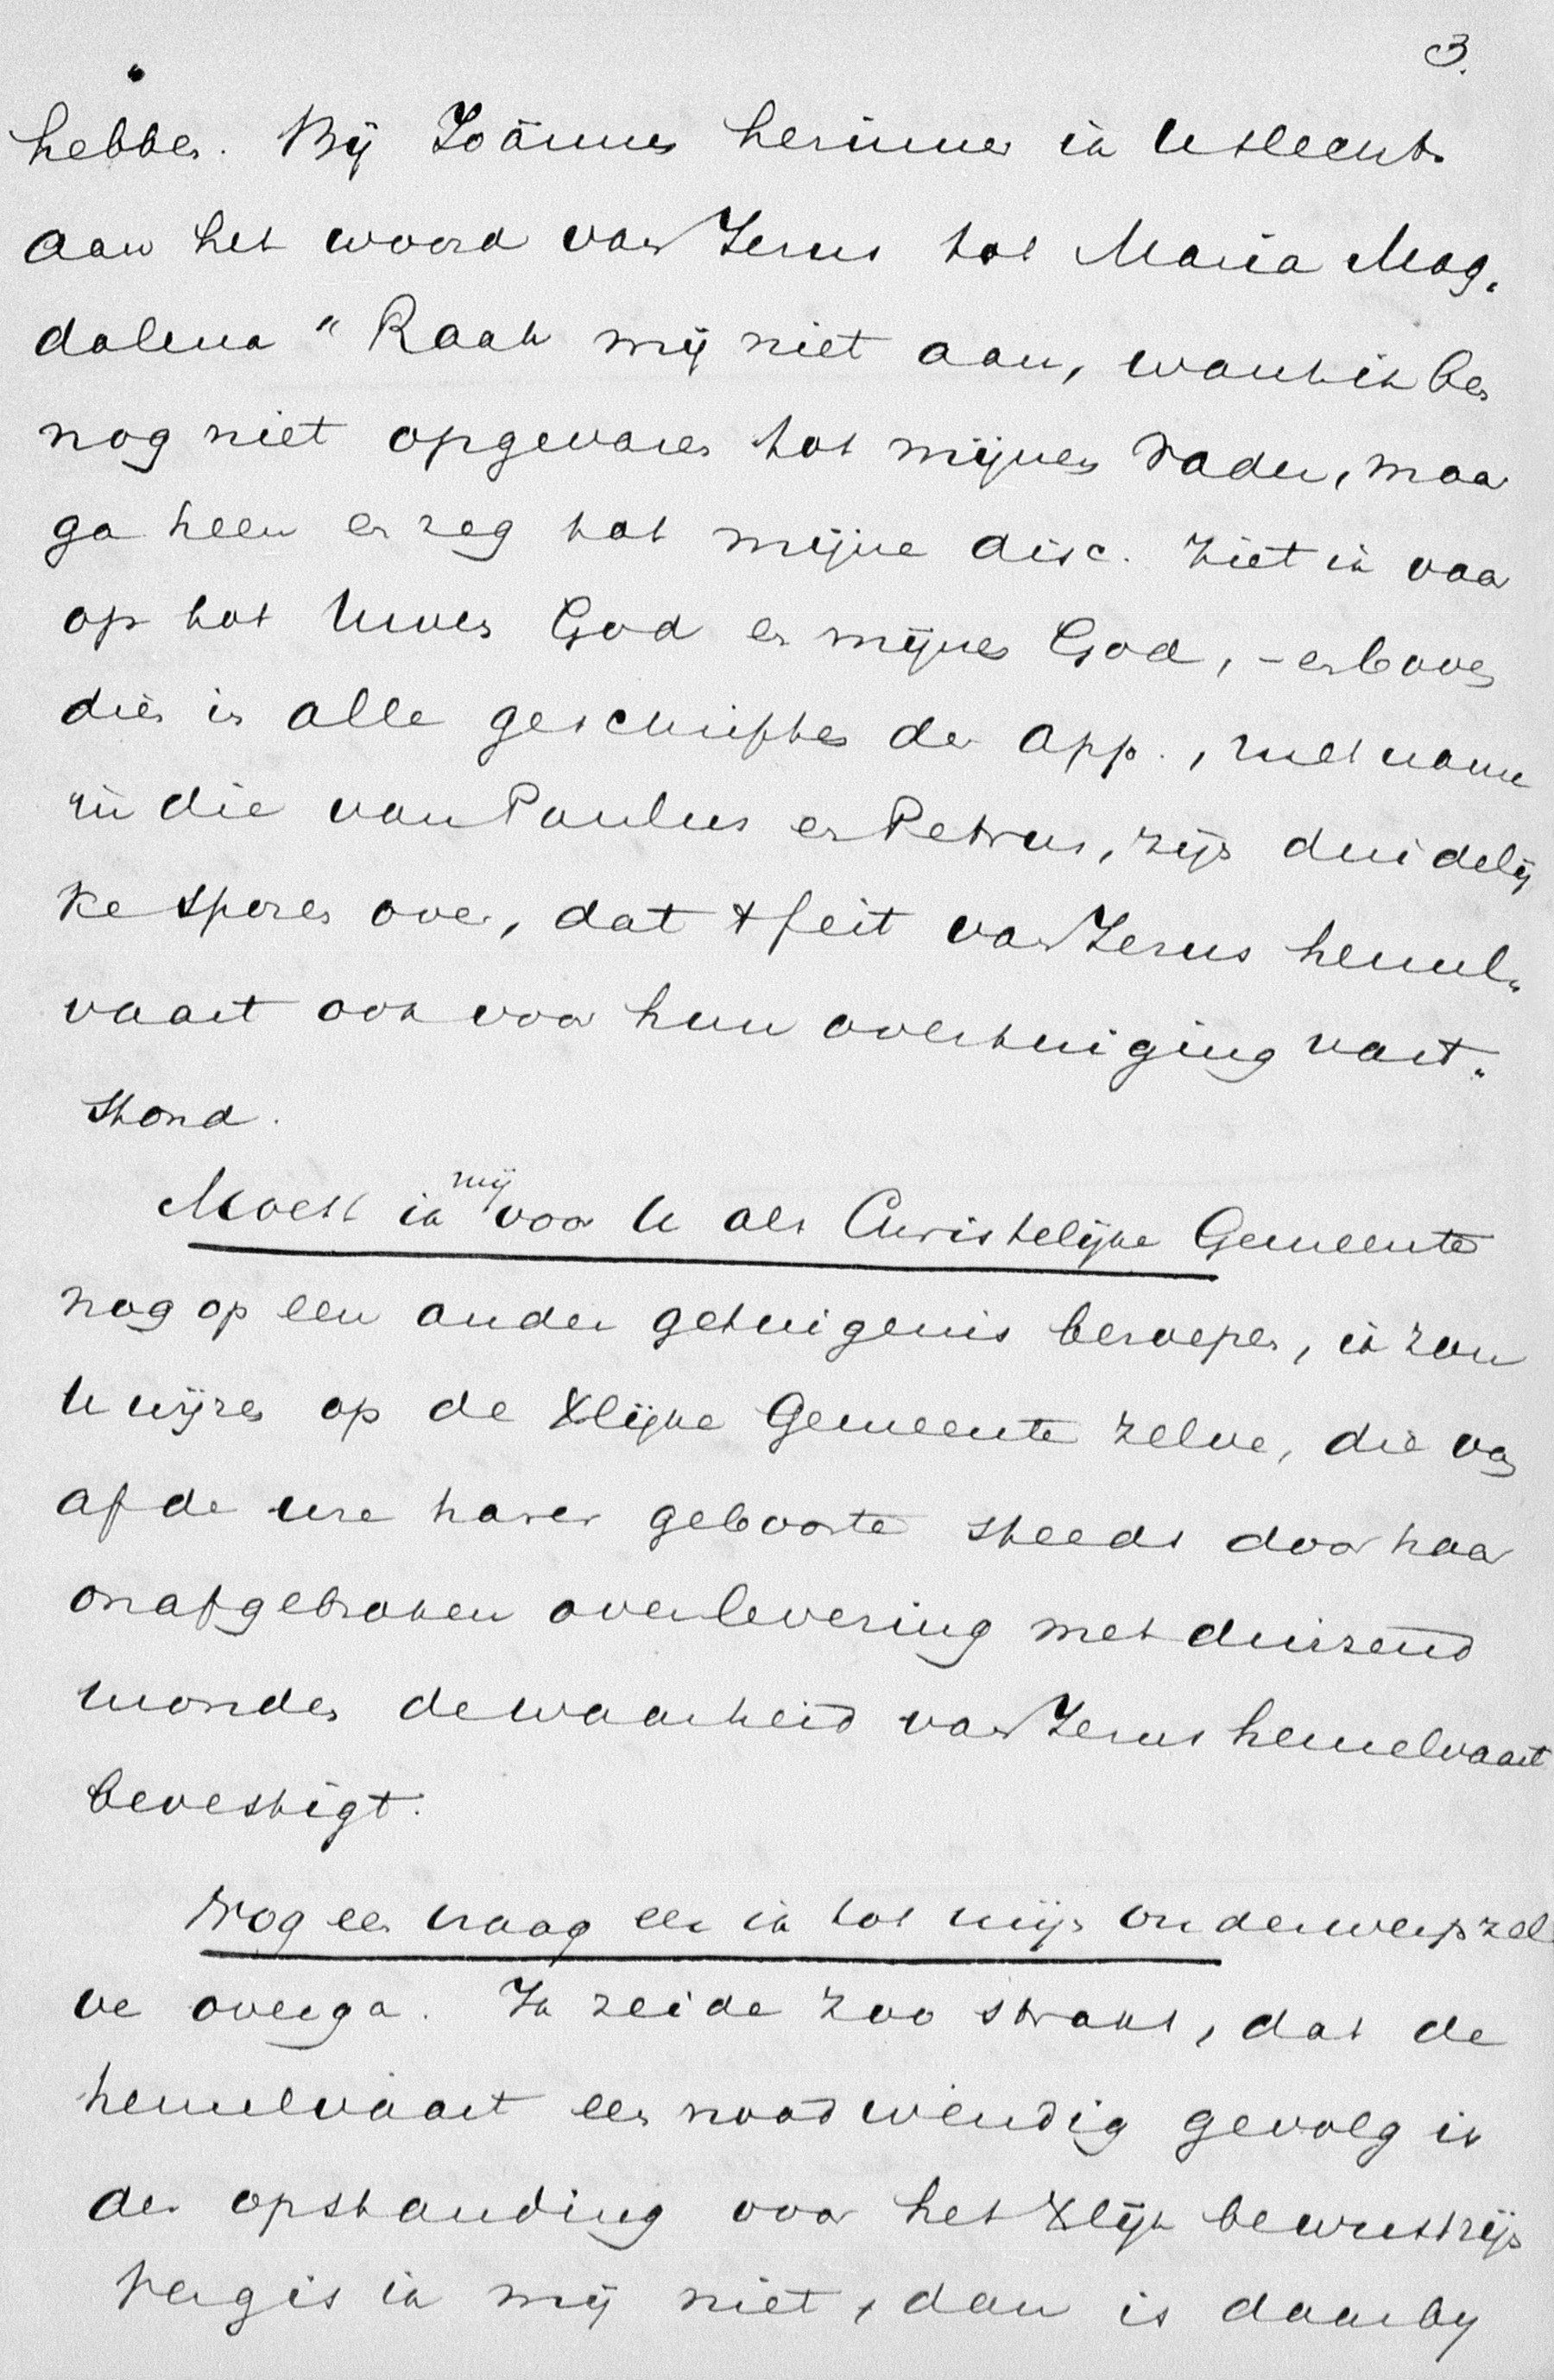 3.
hebben. Bij Joännes herinner ik U slechts
aan het woord van Jesus tot Maria Mag„
dalena "Raak mij niet aan, want ik ben
nog niet opgevaren tot mijnen Vader, maar
ga heen en zeg tot mijne disc. Ziet ik vaar
op tot Uwen God en mijnen God, - en boven
dien in alle geschriften der App., met name
in die van Paulus en Petrus, zijn duidelij
ke sporen over, dat 't feit van Jesus hemel„
vaart ook voor hun overtuiging vast„
stond.
Moest ik mij voor U als Christelijke Gemeente
nog op een ander getuigenis beroepen, ik zou
U wijzen op de Xlijke Gemeente zelve, die van
af de ure harer geboorte steeds door haar
onafgebroken overlevering met duizend
monden de waarheid van Jesus hemelvaart
bevestigt.
Nog een vraag eer ik tot mijn onderwerp zel
ve overga. Ik zeide zoo straks, dat de
hemelvaart een noodwendig gevolg is
der opstanding voor het Xlijk bewustzijn
Vergis ik mij niet, dan is daarby